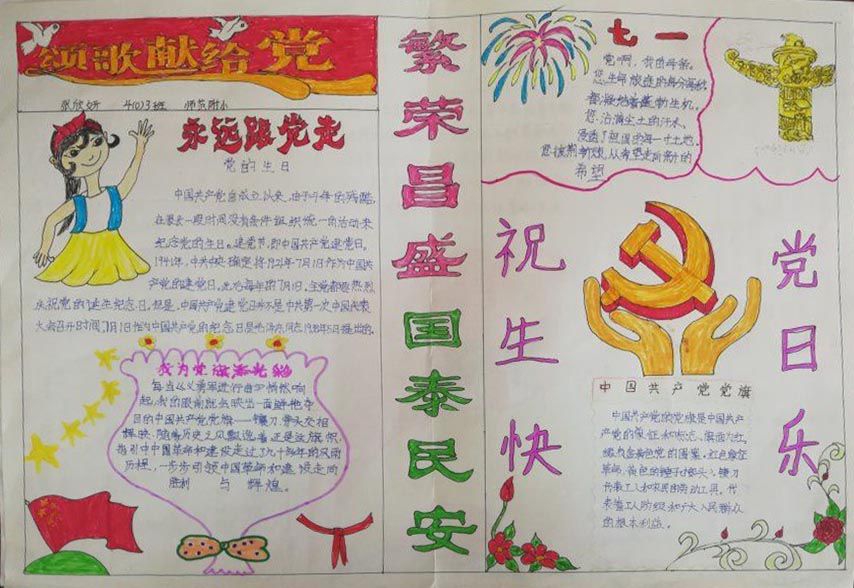 颂歌献给党
张欣妍 4(0)3班 师范附小
永远跟党走
党的生日
中国共产党自成立以来,由于斗争的残酷,
在很长一段时间没有条件组织统一的活动来
纪念党的生日。建党节,即中国共产党建党日。
1941年,中共中央确定将1921年7月1日作为中国共
产党的建党日。此后每年的7月1日,全党都要热烈
庆祝党的诞生纪念日。但是,中国共产党建党日并不是中共第一次中国代表
大会召开时间,7月1日作为中国共产党的纪念日是毛泽东同志1938年5月提出的。
我为党旗添光彩
每当《义勇军进行曲》悄然响
起,我的眼前就会映出一面鲜艳夺
目的中国共产党党旗——镰刀斧头交相
辉映,随着历史之风飘
指引中中国革命和建设走过了九十多年的风雨
历程,一步步引领中国革命和建设走向
胜利 与 辉煌。
繁荣昌盛国泰民安
七一
党啊,我的母亲。
您生命旅途的每分每秒,
都凝结着蓬勃生机。
您沾满尘土的汗水,
浸透了祖国的每一寸土地。
希望
祝生快
党日乐
中国共产党党旗
中国共产党的党旗是中国共产
产党的象征和标志,旗面为红,
缀有金黄色党的图案。红色象征
革命,黄色的锤子(锤头)、镰刀
代表工人和农民的劳动工具,代
表着工人阶级和广大人民群众
的根本利益。